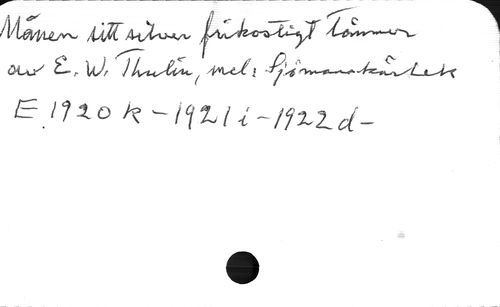 Månen sitt silver frikostigt tömmer
av E. W. Thulin, mel: Sjömanskärlek
E 1920 k - 1921 i - 1922 d -